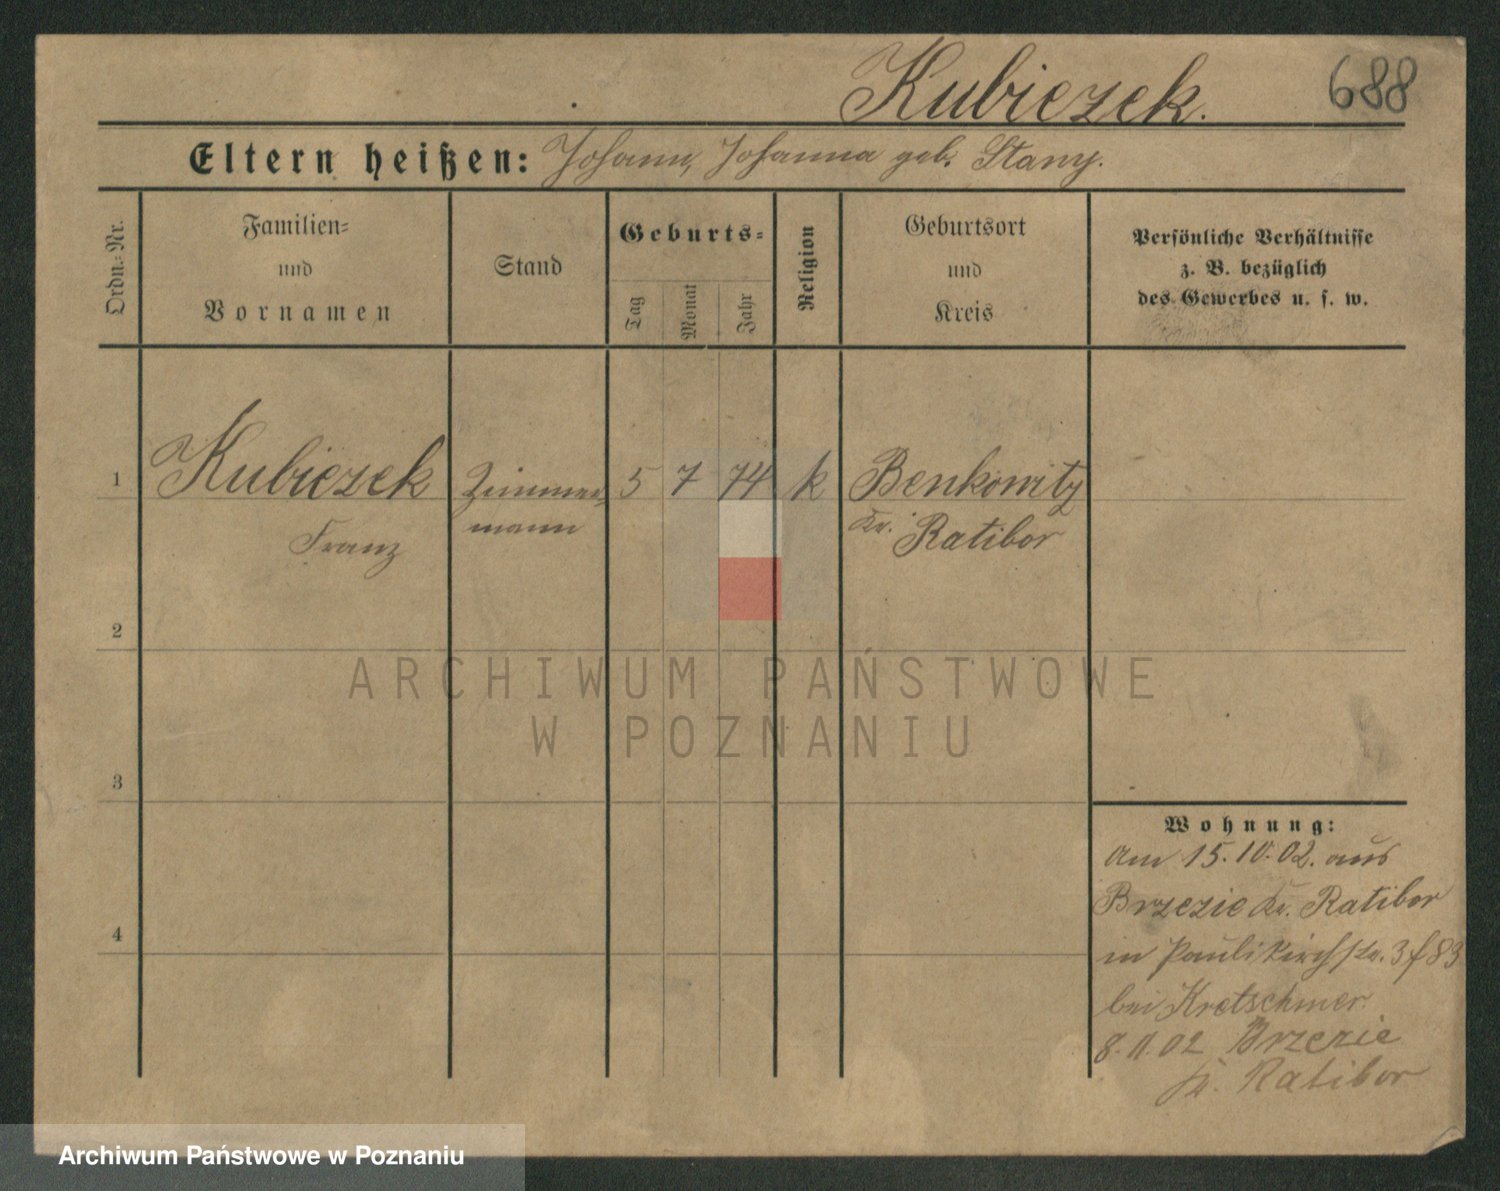 Kubiczek.
688
Eltern heißen: Johann, Johanna geb. Stany.
Ordn.-Nr.
Familien-
und
Vornamen
Stand
Geburts-
Tag
Monat
Jahr
Religion
Geburtsort
und
Kreis
Persönliche Verhältnisse
z. B. bezüglich
des Gewerbes u. s. w.
1 Kubiczek Zimmer- 5 7 74 k Benkowitz
Franz mann Kr. Ratibor
2
ARCHIWUM PAŃSTWOWE
W POZNANIU
3
Wohnung:
Am 15.10.02. aus
Brzezie Kr. Ratibor
4
in Paulikirchstr. 3 f 83
bei Kretschmer.
8.11.02 Brzezie
Kr. Ratibor
Archiwum Państwowe w Poznaniu